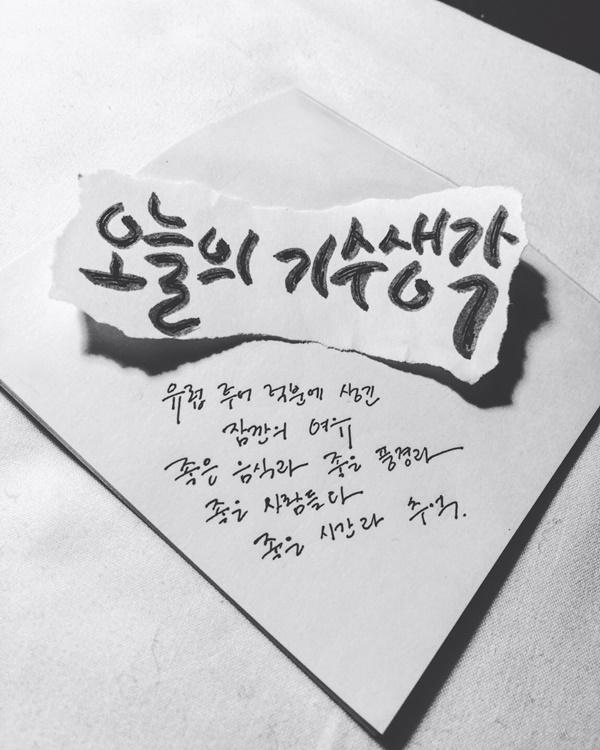 오늘의 기수생각
유럽 투어 덕분에 생긴
잠깐의 여유
좋은 음식과 좋은 풍경과
좋은 사람들과
좋은 시간과 추억.